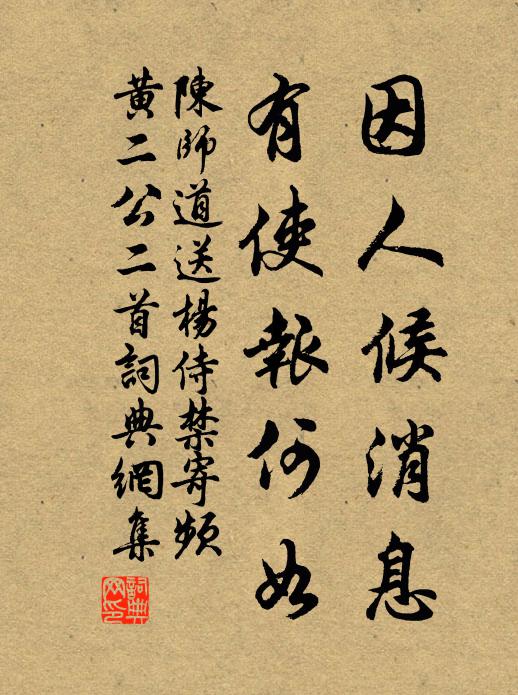 因人候消息
有使報何如
陳師道送楊侍禁寄頻
黃二公二首詞典網集
詞典網印